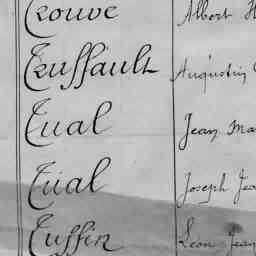 Trouvé Albert
Truffault Augustin
Tual Jean Ma
Tual Joseph Jea
Tuffin Léon Jean